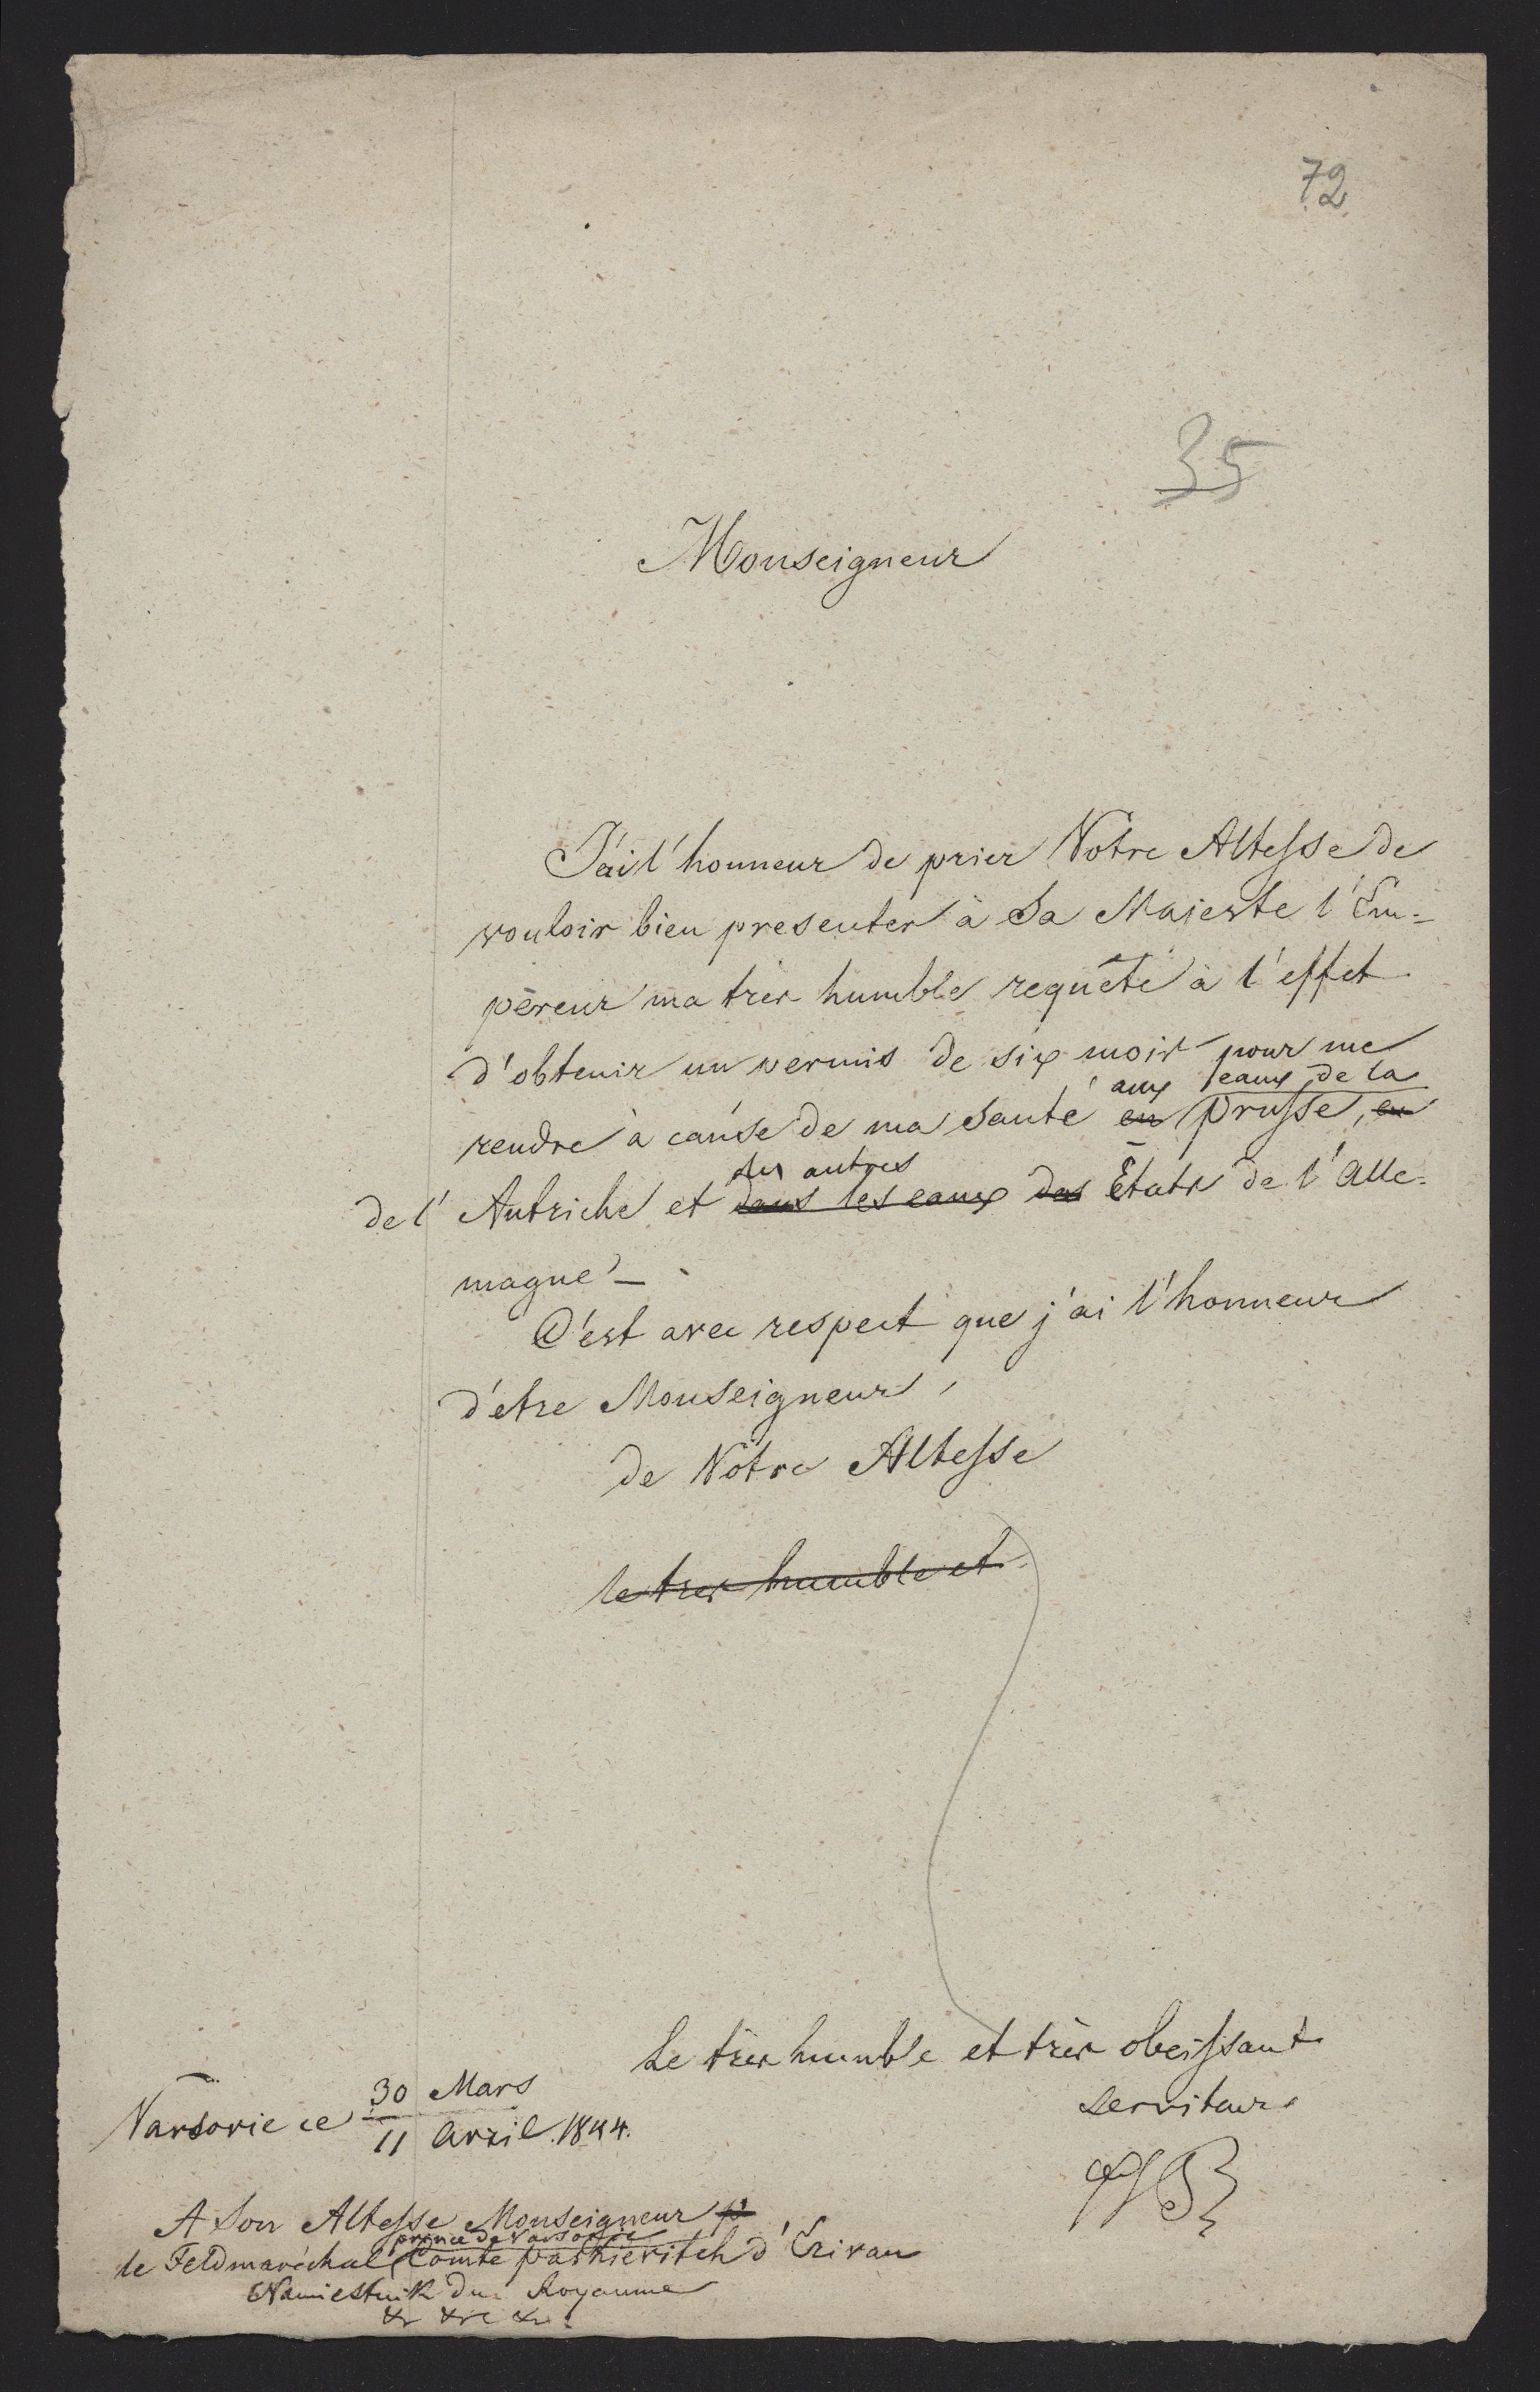 72
35
Monseigneur
J'ai l'honneur de prier Votre Altesse de
vouloir bien presenter à Sa Majeste l'Em-
péreur ma tres humble requête à l'effet
d'obtenir un permis de six mois pour me
aux eaux de la
rendre à cause de ma Santé en Prusse, en
des autres
de l'Autriche et dans les eaux des États de l'Alle-
magne.
C'est avec respect que j'ai l'honneur
d'etre Monseigneur,
de Votre Altesse
le tres humble et
Le très humble et très obeissant
Serviteur
Varsovie ce 30 Mars
11 Avril 1844.
A Son Altesse Monseigneur p
prince de Varsovie
le Feldmaréchal Comte Paskievitch d'Erivan
Namiestnik du Royaume
&c &c &c.